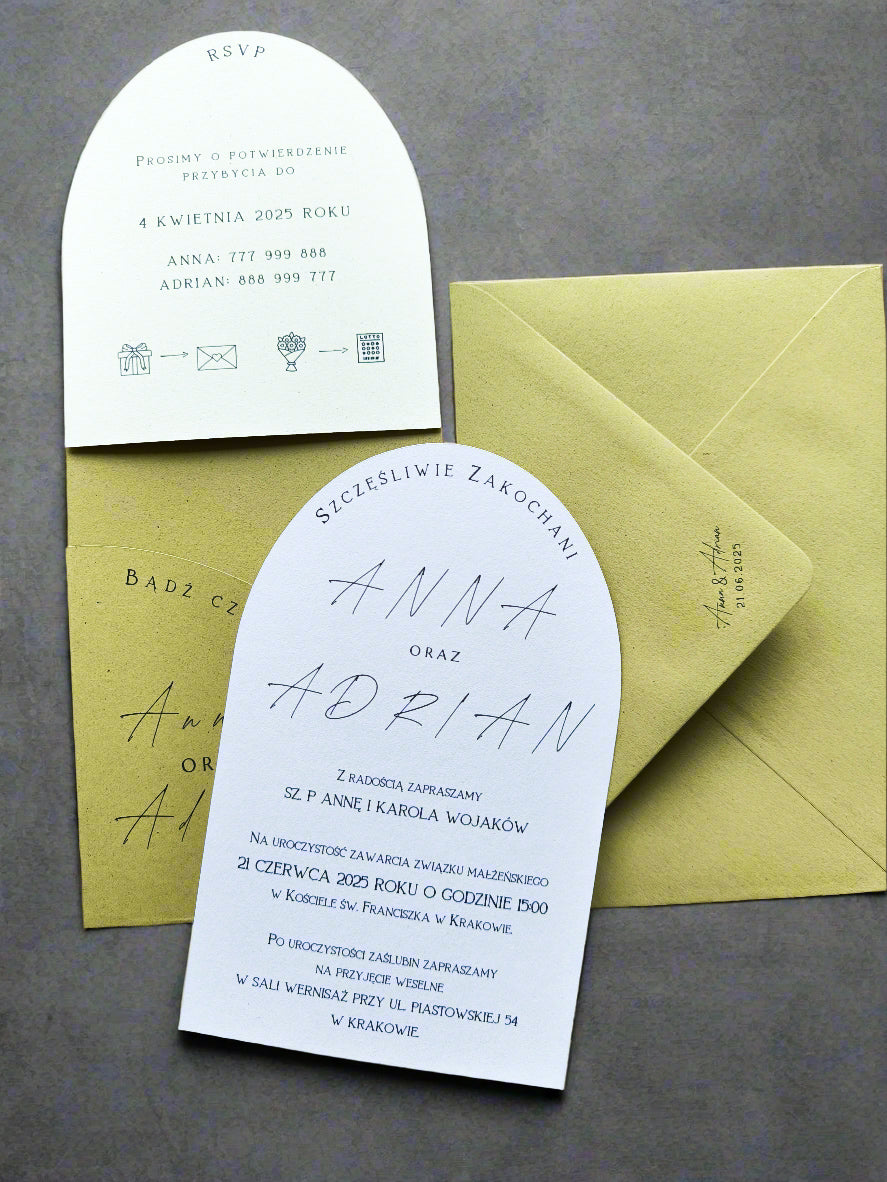 RSVP
PROSIMY O POTWIERDZENIE
PRZYBYCIA DO
4 KWIETNIA 2025 ROKU
ANNA: 777 999 888
ADRIAN: 888 999 777
LOTTO
SZCZĘŚLIWIE ZAKOCHANI
ANNA
ORAZ
ADRIAN
Z RADOŚCIĄ ZAPRASZAMY
SZ. P. ANNĘ I KAROLA WOJAKÓW
NA UROCZYSTOŚĆ ZAWARCIA ZWIĄZKU MAŁŻEŃSKIEGO
21 CZERWCA 2025 ROKU O GODZINIE 15:00
W KOŚCIELE ŚW. FRANCISZKA W KRAKOWIE.
PO UROCZYSTOŚCI ZAŚLUBIN ZAPRASZAMY
NA PRZYJĘCIE WESELNE
W SALI WERNISAŻ PRZY UL. PIASTOWSKIEJ 54
W KRAKOWIE.
BĄDŹ CZ
Ann
OR
Ad
Anna & Adrian
21.06.2025